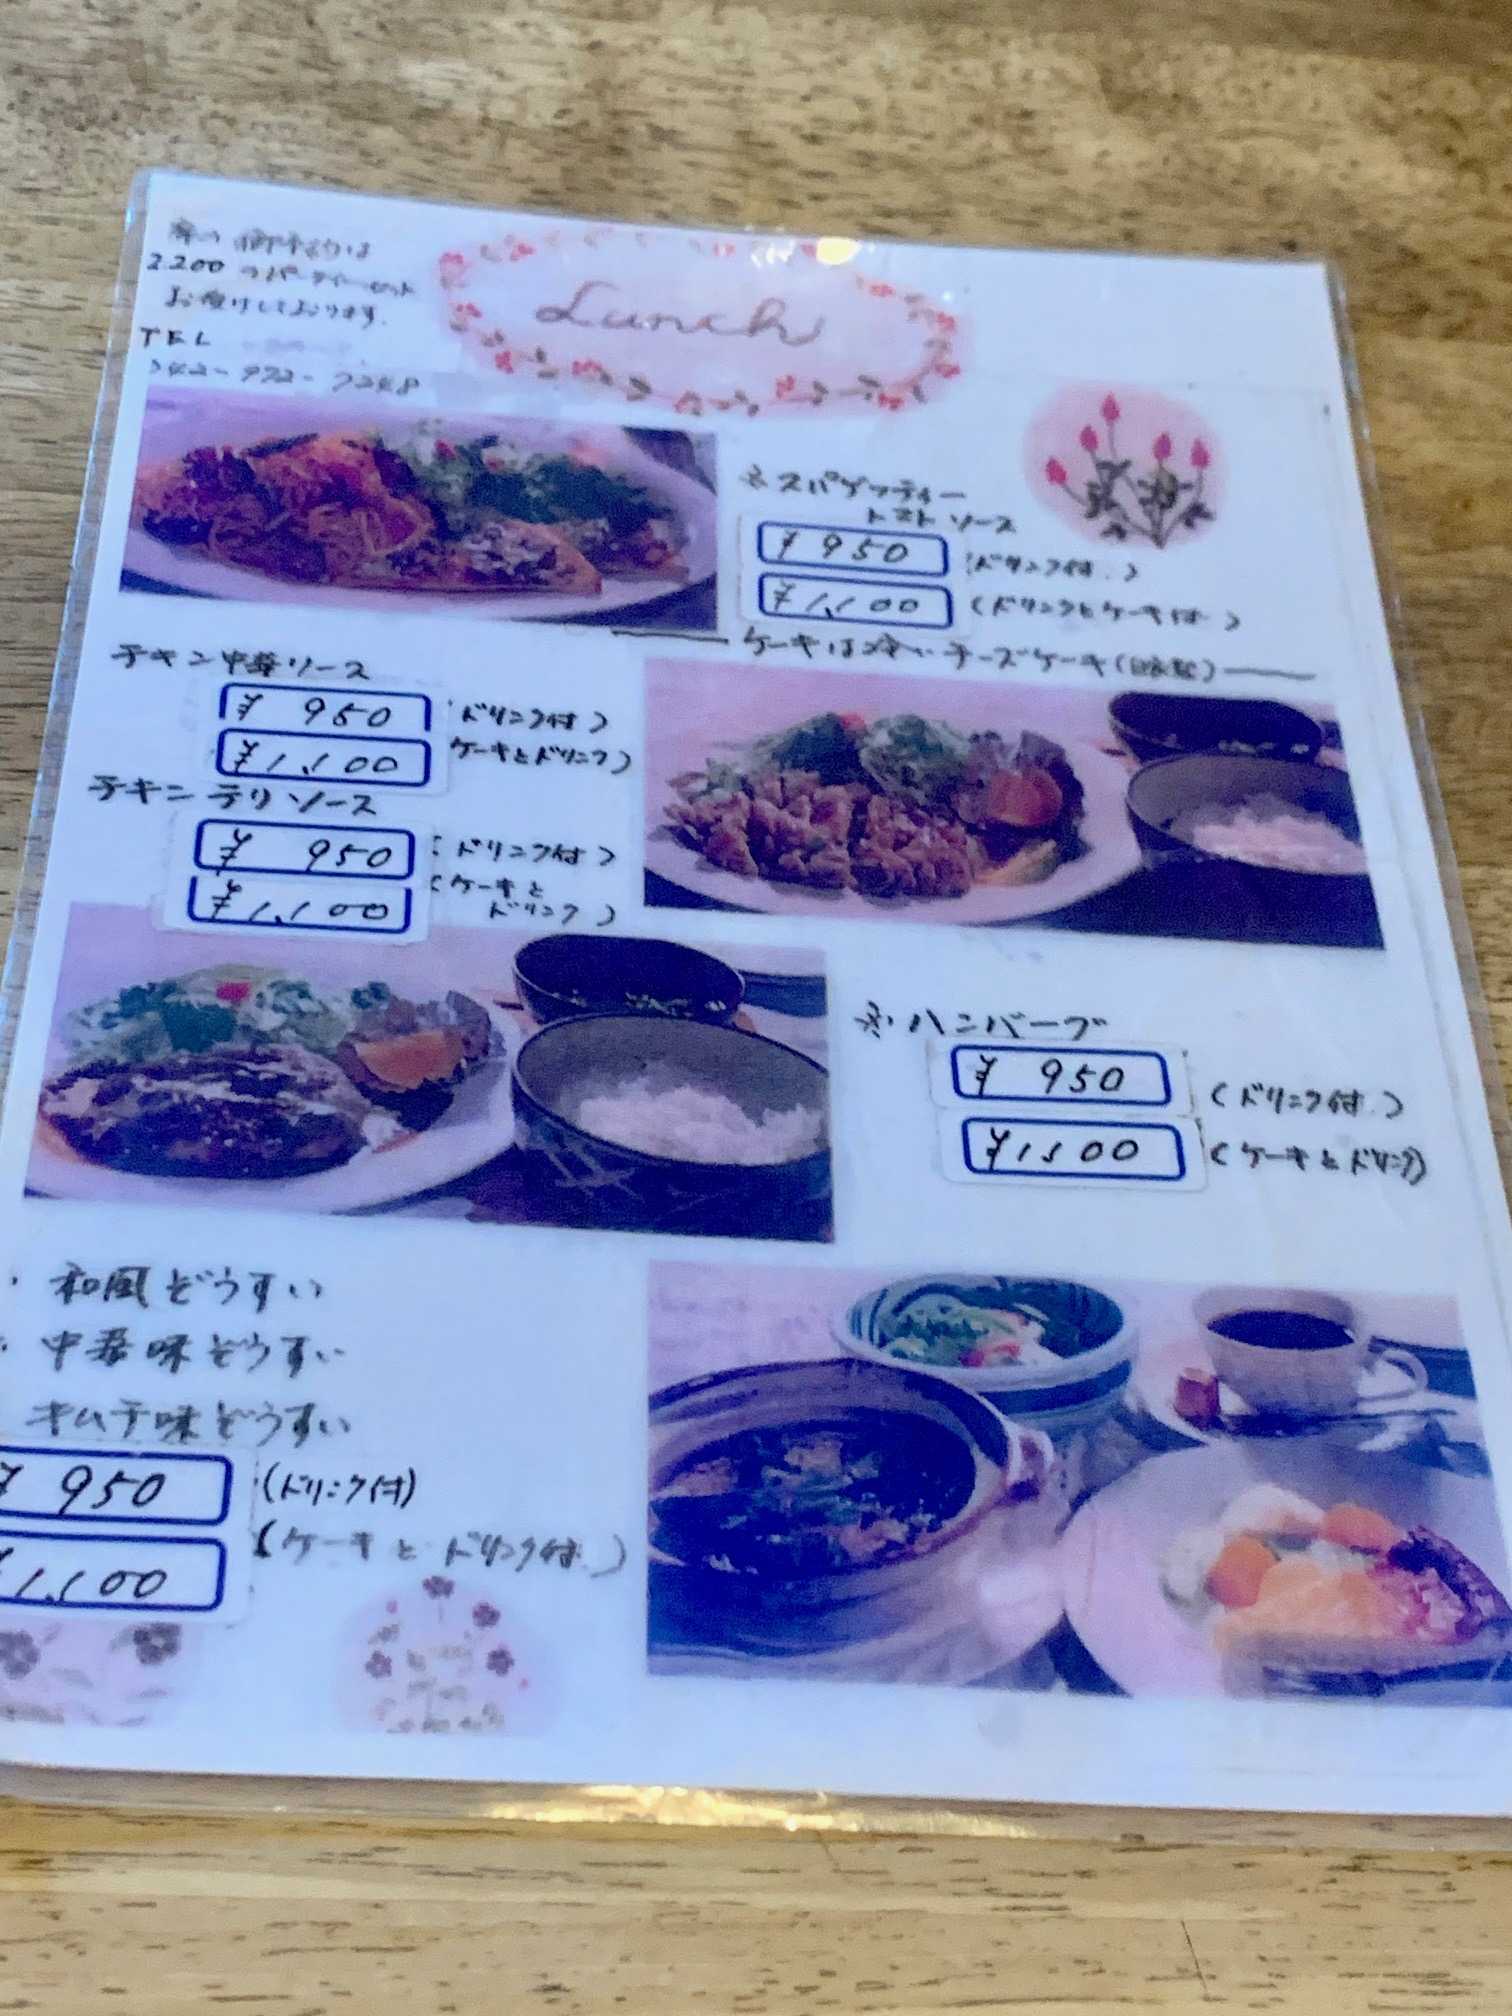 2.200 のパーティーセット
お受けしております。
TEL
042-972-7248
Lunch
※スパゲッティー
トマトソース
¥950 (ドリンク付)
¥1,100 (ドリンクとケーキ付)
チーズケーキ(自家製)
チキン中華ソース
¥950 (ドリンク付)
¥1,100 ケーキとドリンク)
チキンテリソース
¥950 (ドリンク付)
¥1,100 (ケーキと
ドリンク)
※ハンバーグ
¥950 (ドリンク付)
¥1,100 (ケーキとドリンク)
・和風ぞうすい
・中華味ぞうすい
キムチ味ぞうすい
¥950 (ドリンク付)
¥1,100 (ケーキとドリンク付)